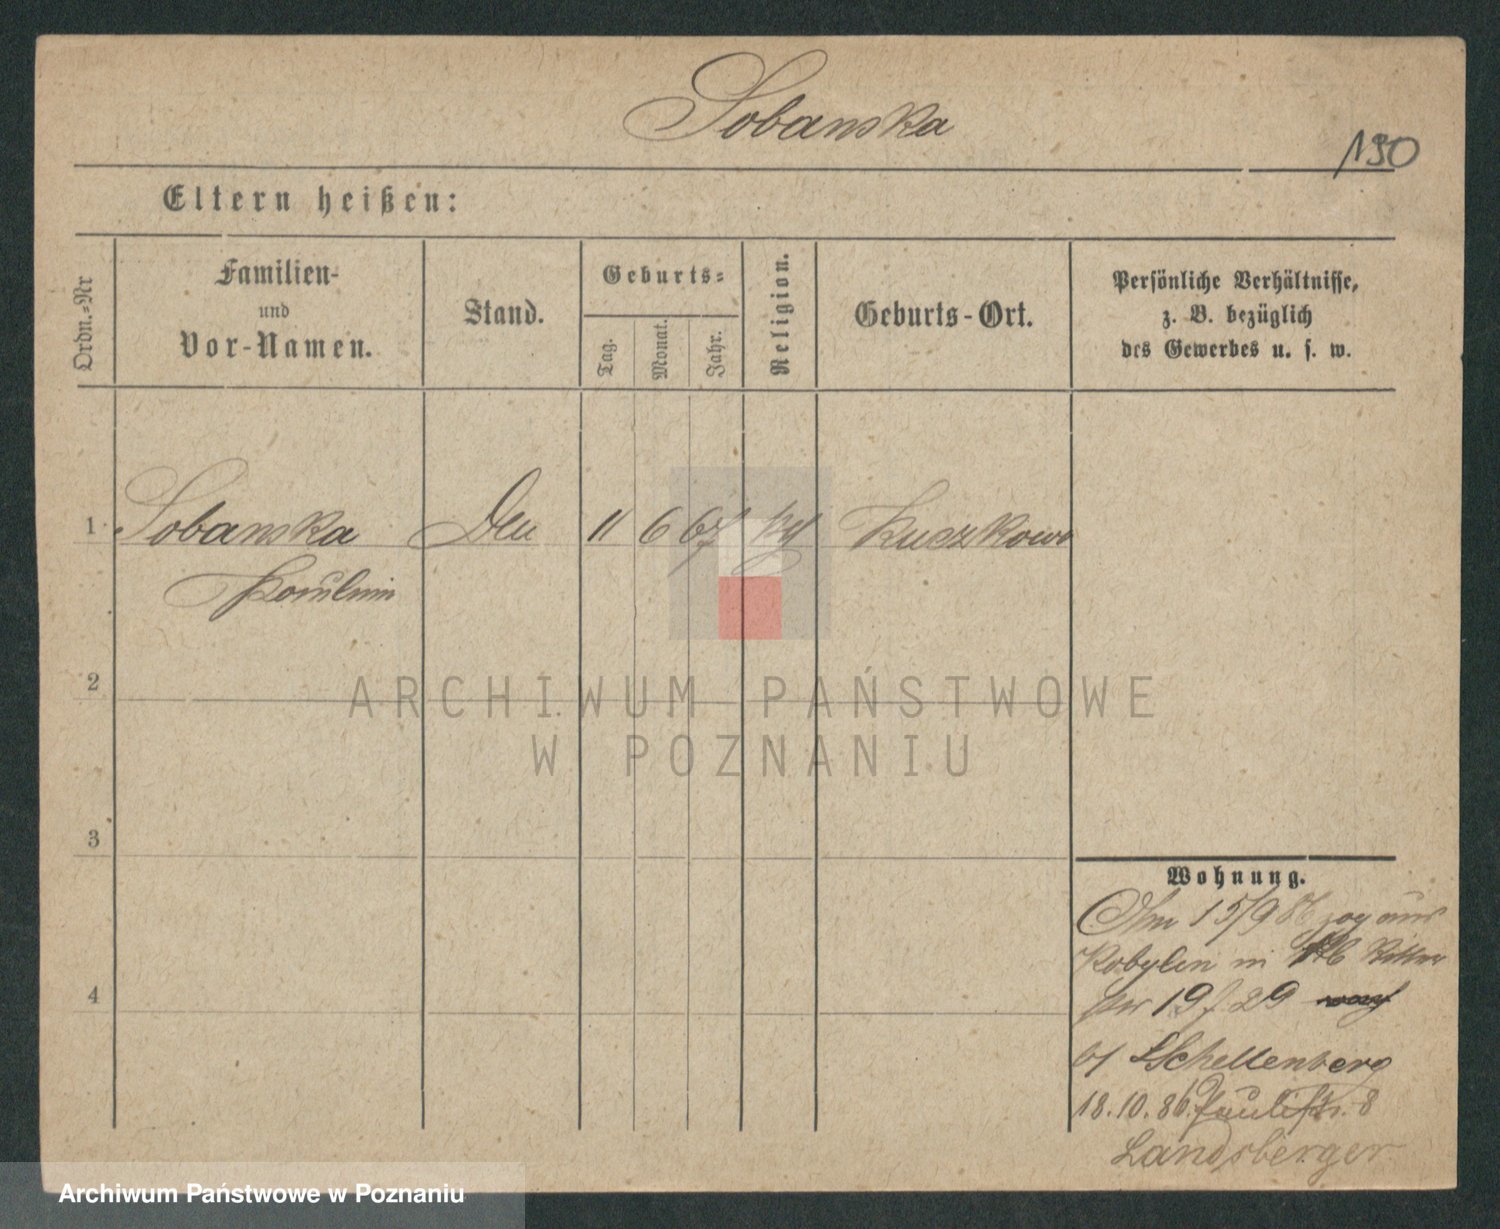 Sobanska
190
Eltern heißen:
Ordn.-Nr
Familien-
und
Vor-Namen.
Stand.
Geburts-
Tag.
Monat.
Jahr.
Religion.
Geburts-Ort.
Persönliche Verhältnisse,
z. B. bezüglich
des Gewerbes u. s. w.
1 Sobanska 11 6 67 Kuczkowo
2
3
4
ARCHIWUM PAŃSTWOWE
W POZNANIU
Wohnung.
15/9 86 zog
Kobylin in
19/ 29
b/ Schellenberg
18.10.86. Paulistr. 8
Landsberger
Archiwum Państwowe w Poznaniu